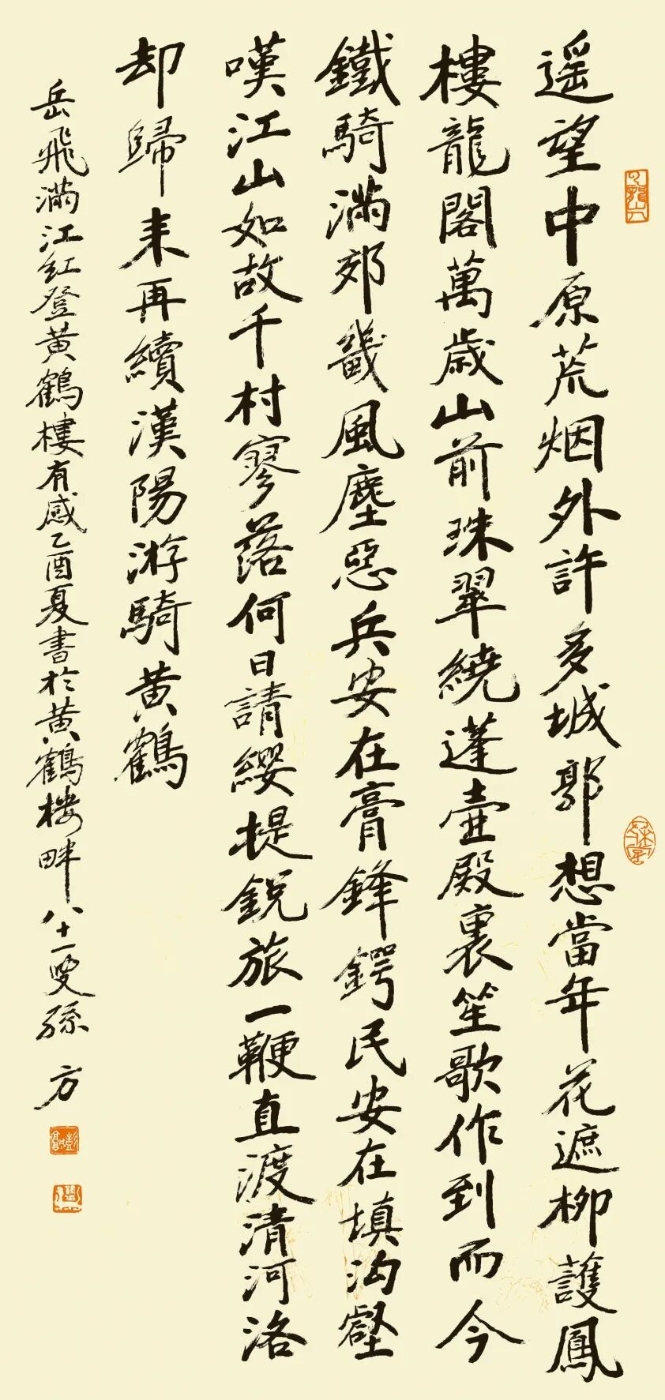 遥望中原荒烟外許多城郭想當年花遮柳護鳳
樓龍閣萬歲山前珠翠繞蓬壺殿裏笙歌作到而今
鐵騎滿郊畿風塵惡兵安在膏鋒鍔民安在填沟壑
嘆江山如故千村寥落何日請纓提鋭旅一鞭直渡清河洛
却歸来再續漢陽游騎黄鶴
岳飛滿江紅登黄鶴樓有感乙酉夏書於黄鶴楼畔八十一叟孫方